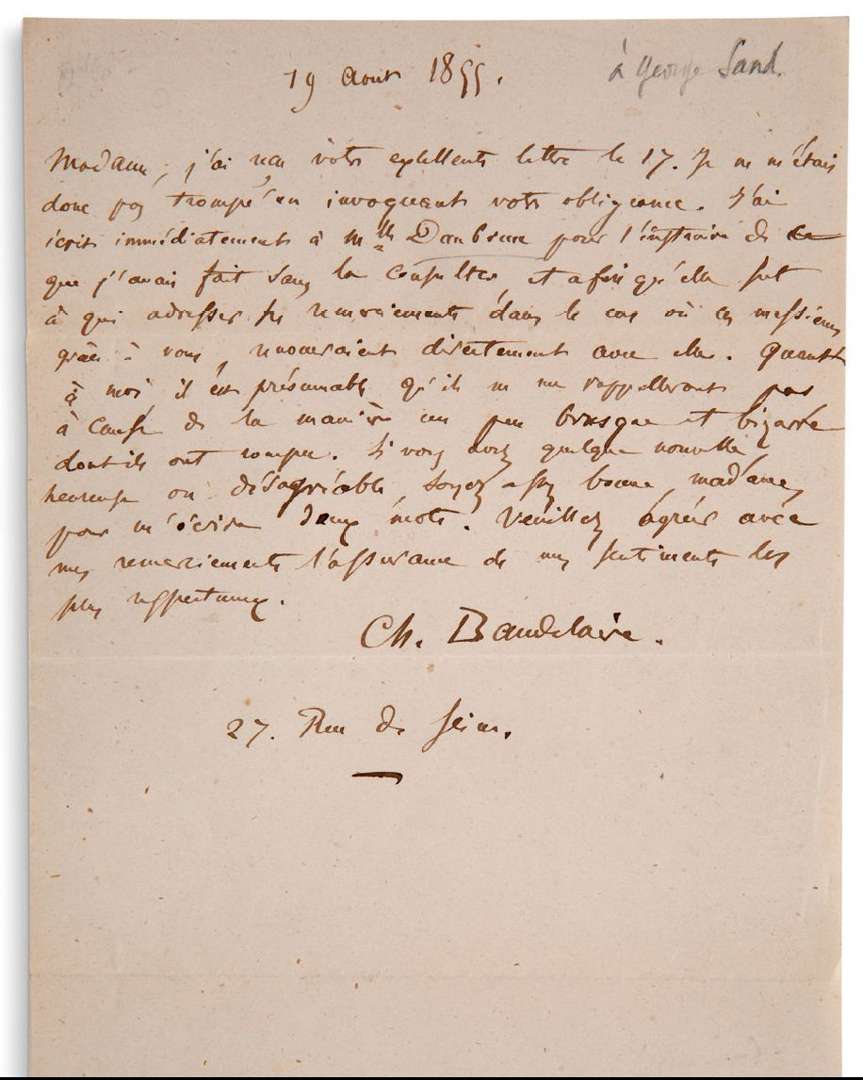 19 Aout 1855.
à George Sand.
Madame, j'ai reçu votre excellente lettre le 17. Je ne m'étais
donc pas trompé en invoquant votre obligeance. J'ai
écrit immédiatement à Mlle Daubrun pour l'instruire de ce
que j'avais fait sans la consulter, et afin qu'elle sut
à qui adresser ses remerciements dans le cas où ces messieurs
grâce à vous, renoueraient directement avec elle. Quant
à moi il est présumable qu'ils ne me rappelleront pas
à cause de la manière un peu brusque et bizarre
dont ils ont rompu. Si vous avez quelque nouvelle
heureuse ou désagréable, soyez assez bonne, madame,
pour m'écrire deux mots. Veuillez agréer avec
mes remerciements l'assurance de mes sentiments les
plus respectueux.
Ch. Baudelaire.
27. Rue de Seine.